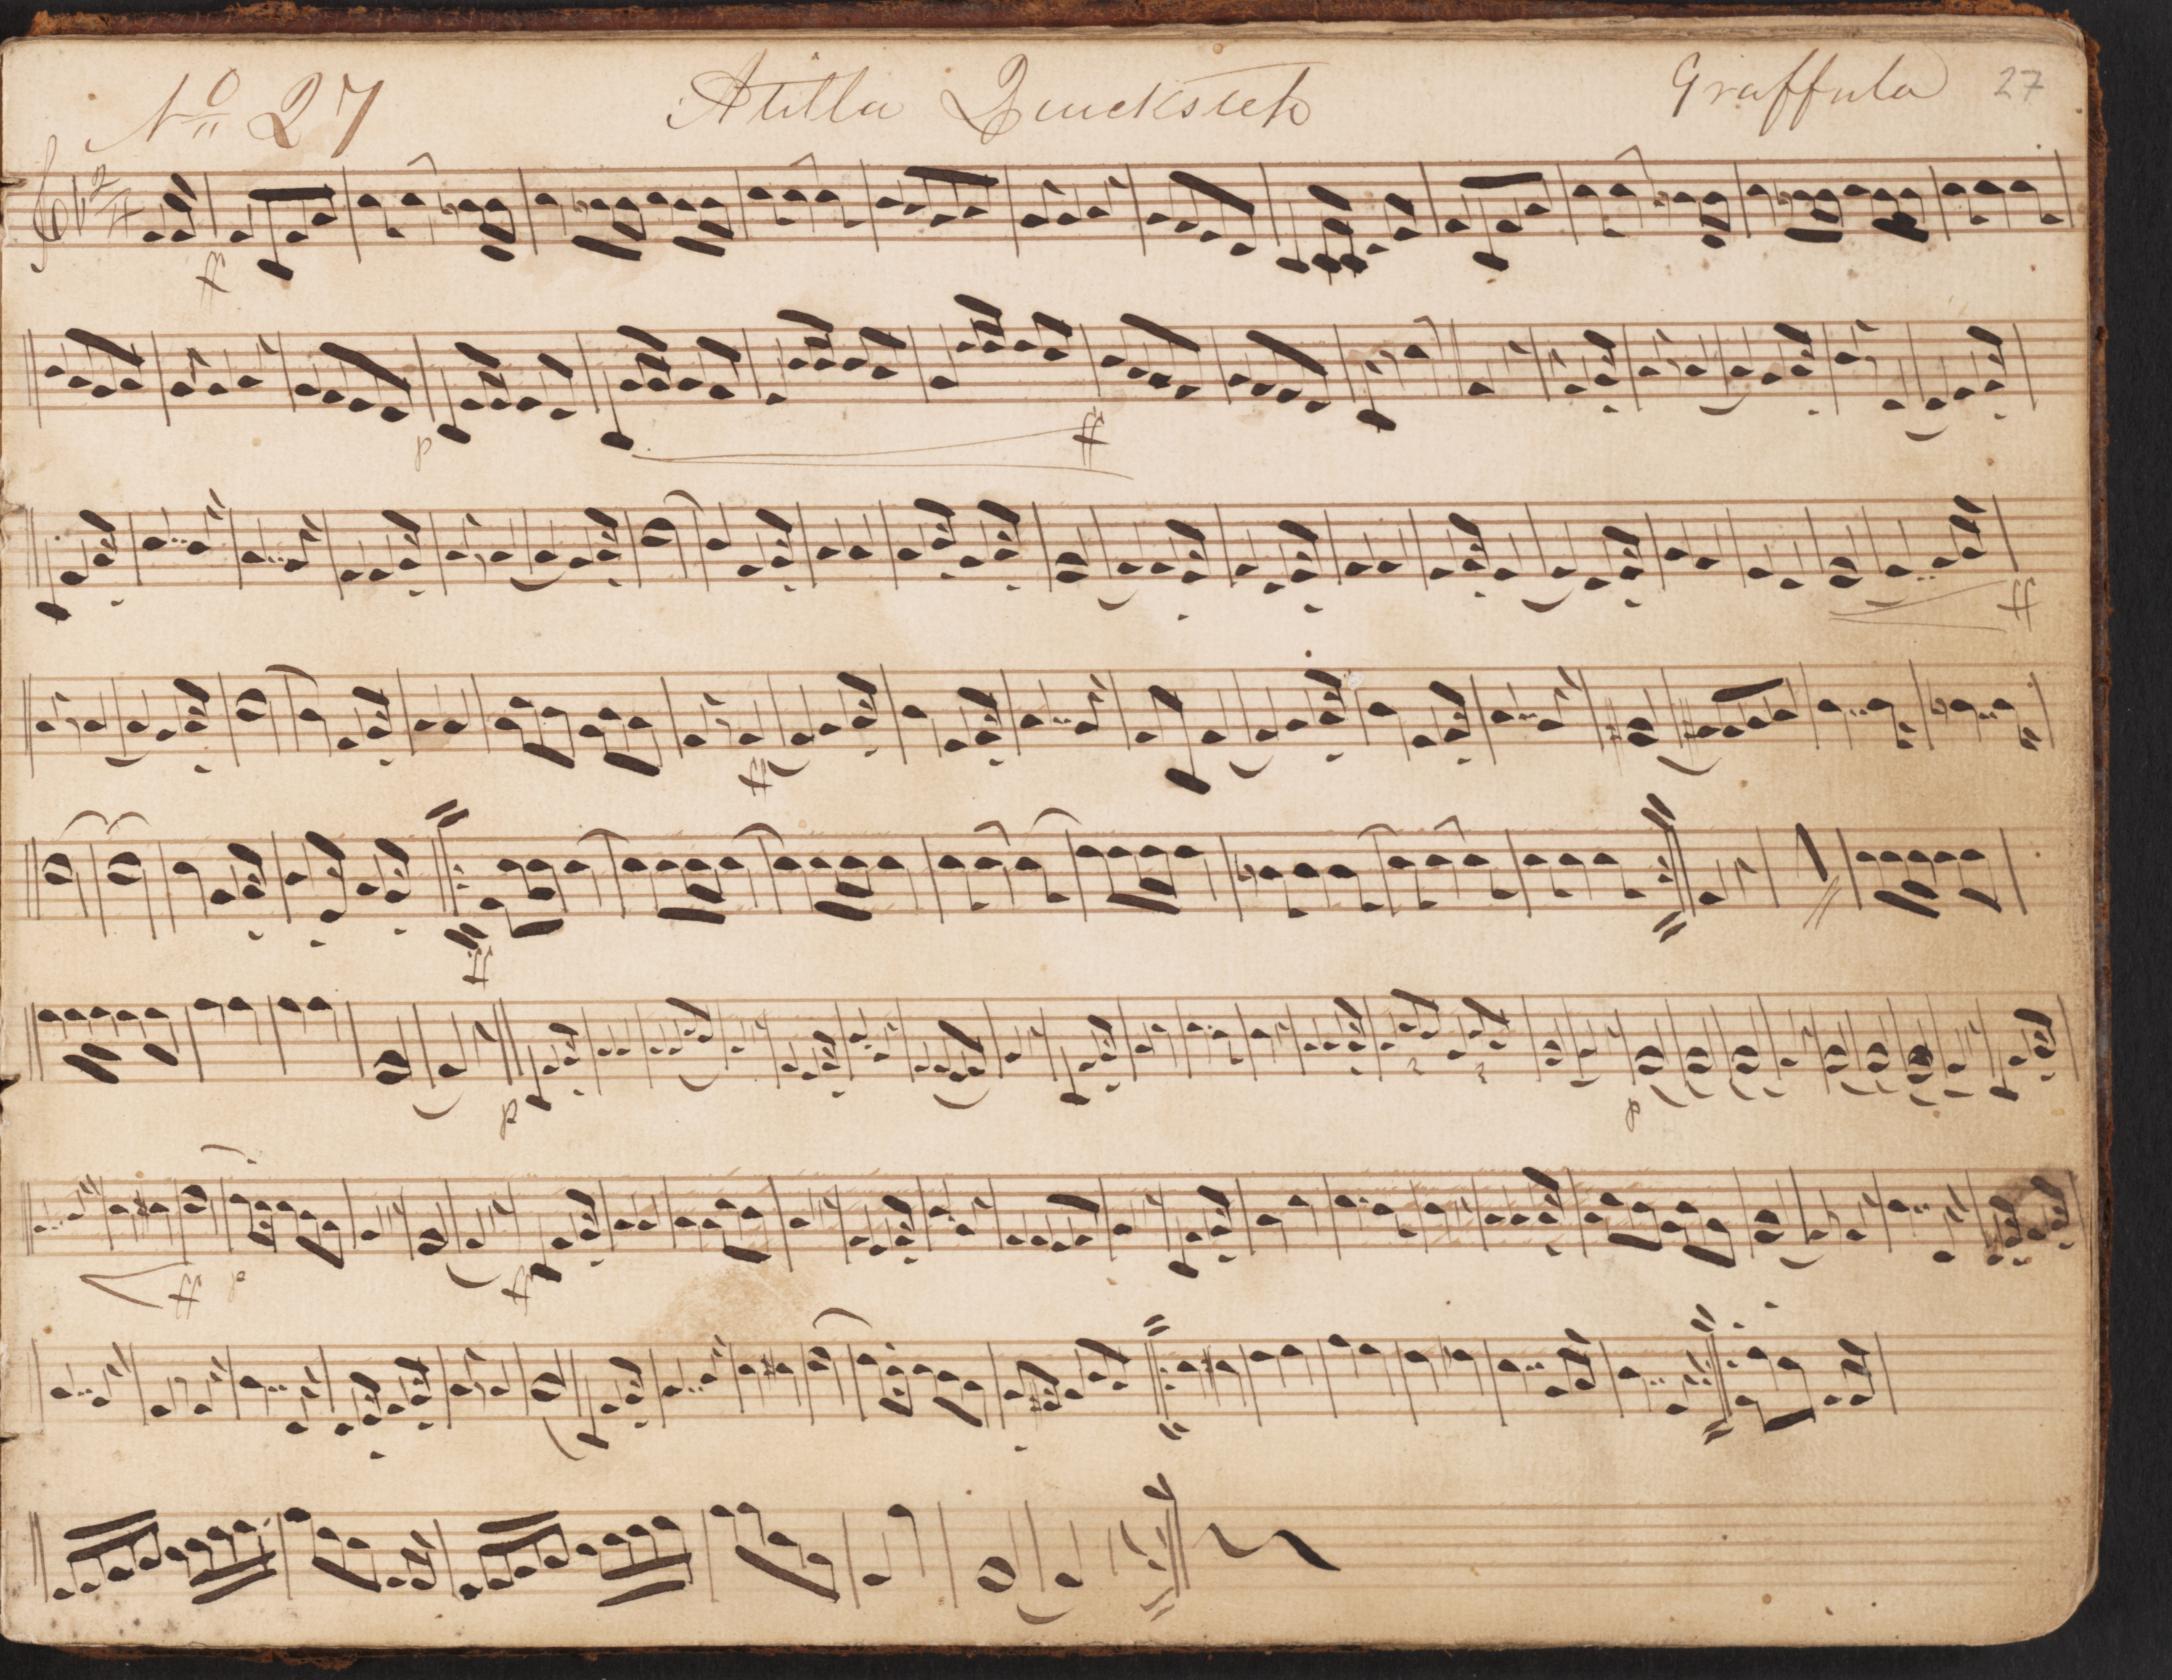 No 27 Atilla Quickstek Graffula 27
2
4
ff
p ff
ff
ff
ff
p p
ff p ff